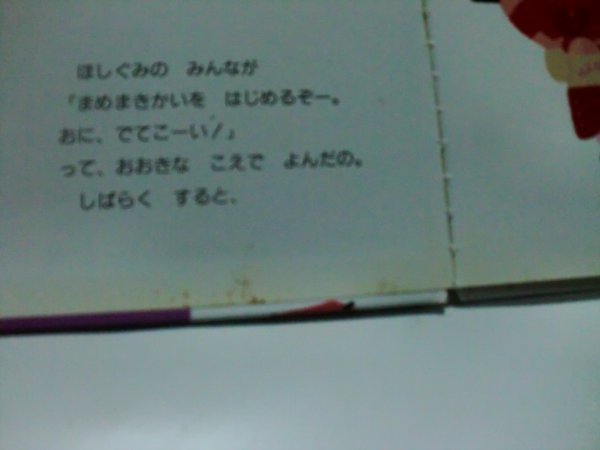 ほしぐみの　みんなが
「まめまきかいを　はじめるぞー。
おに、でてこーい！」
って、おおきな　こえで　よんだの。
しばらく　すると、